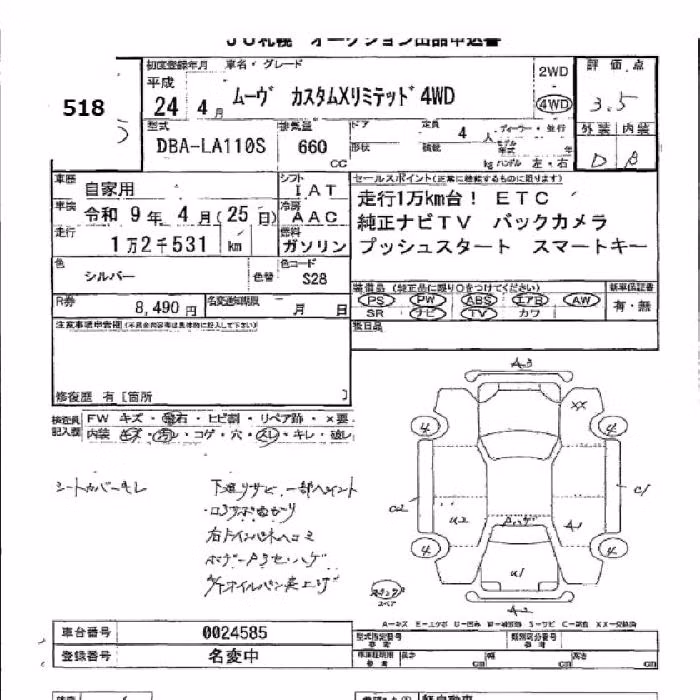 JU札幌 オークション出品申込書
518
初度登録年月 車名・グレード
平成
24 4月 ムーヴ カスタムXリミテッド 4WD
2WD
4WD
評価点
3.5
外装 内装
D B
型式 排気量 ドア 定員
DBA-LA110S 660 cc
4人
形状 積載 kg ハンドル 左・右
車歴 自家用
シフト IAT
車検 令和 9年 4月(25日)
冷房 AAC
走行 1万2千531 km
燃料 ガソリン
色 シルバー 色替
色コード S28
セールスポイント(正常に機能するものに限ります)
走行1万km台! ETC
純正ナビTV バックカメラ
プッシュスタート スマートキー
装備品 (純正品に限り○をつけてください) 新車保証書
PS PW ABS エアB AW 有・無
SR ナビ TV カワ
後日品
R券 8,490円 名変通知期限 月 日
注意事項申告欄
修復歴 有 [箇所 ]
検査員 FW キズ・飛石・ヒビ割・リペア跡・×要
記入欄 内装 キズ・汚レ・コゲ・穴・スレ・キレ・破レ
シートカバーキレ
下廻リサビ、一部ペイント
A3
XX
4 4
C2 C1
U2 A1
4 4
U1
A2
A=キズ E=エクボ U=凹み W=補修跡 S=サビ C=腐食 XX=交換済
車台番号 0024585
登録番号 名変中
型式指定番号 参考
類別区分番号 参考
長さ cm 幅 cm 高さ cm
軽自動車